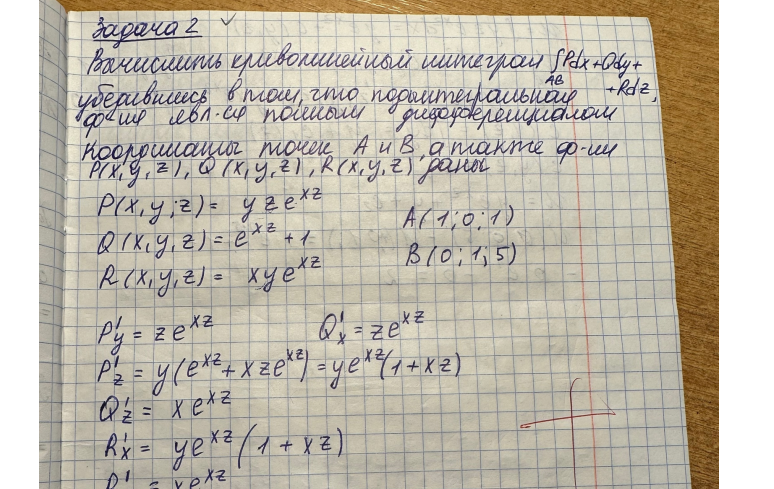 Задача 2
Вычислить криволинейный интеграл ∫Pdx+Qdy+
AB
убедившись в том, что подынтегральная +Rdz,
ф-ия явл-ся полным дифференциалом
Координаты точек A и B, а также ф-ии
P(x,y,z), Q(x,y,z), R(x,y,z) даны
P(x,y,z) = yze^xz
A(1;0;1)
Q(x,y,z) = e^xz + 1
B(0;1;5)
R(x,y,z) = xye^xz
P'y = ze^xz Q'x = ze^xz
P'z = y(e^xz + xze^xz) = ye^xz(1+xz)
Q'z = xe^xz
R'x = ye^xz(1+xz)
R' = xe^xz